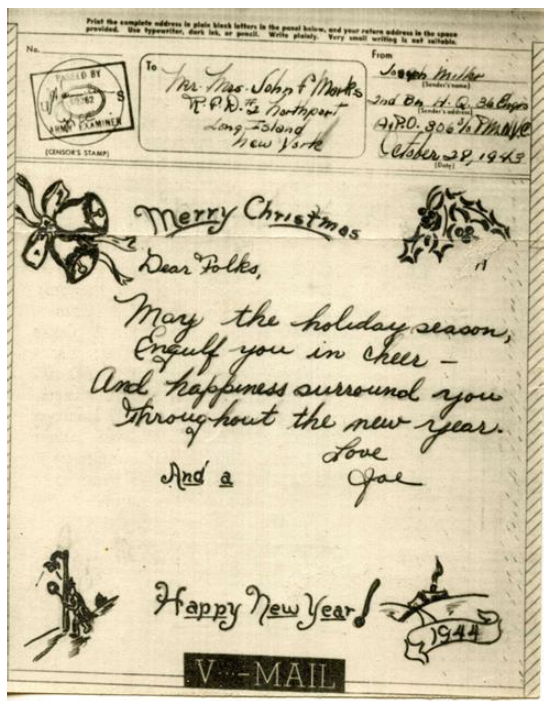 Print the complete address in plain block letters in the panel below, and your return address in the space
provided. Use typewriter, dark ink, or pencil. Write plainly. Very small writing is not suitable.
No.
PASSED BY
U S
ARMY EXAMINER
(CENSOR'S STAMP)
To
Mr. Mrs. John F Marks
Northport
Long Island
New York
From
Joseph Miller
(Sender's name)
2nd Bn H. Q. 36 Engrs
(Sender's address)
A.P.O. 306 % P.M. N.Y.C
October 28, 1943
(Date)
Merry Christmas
Dear Folks,
May the holiday season,
Engulf you in cheer –
And happiness surround you
Throughout the new year.
Love
Joe
And a
Happy New Year!
1944
V···-MAIL